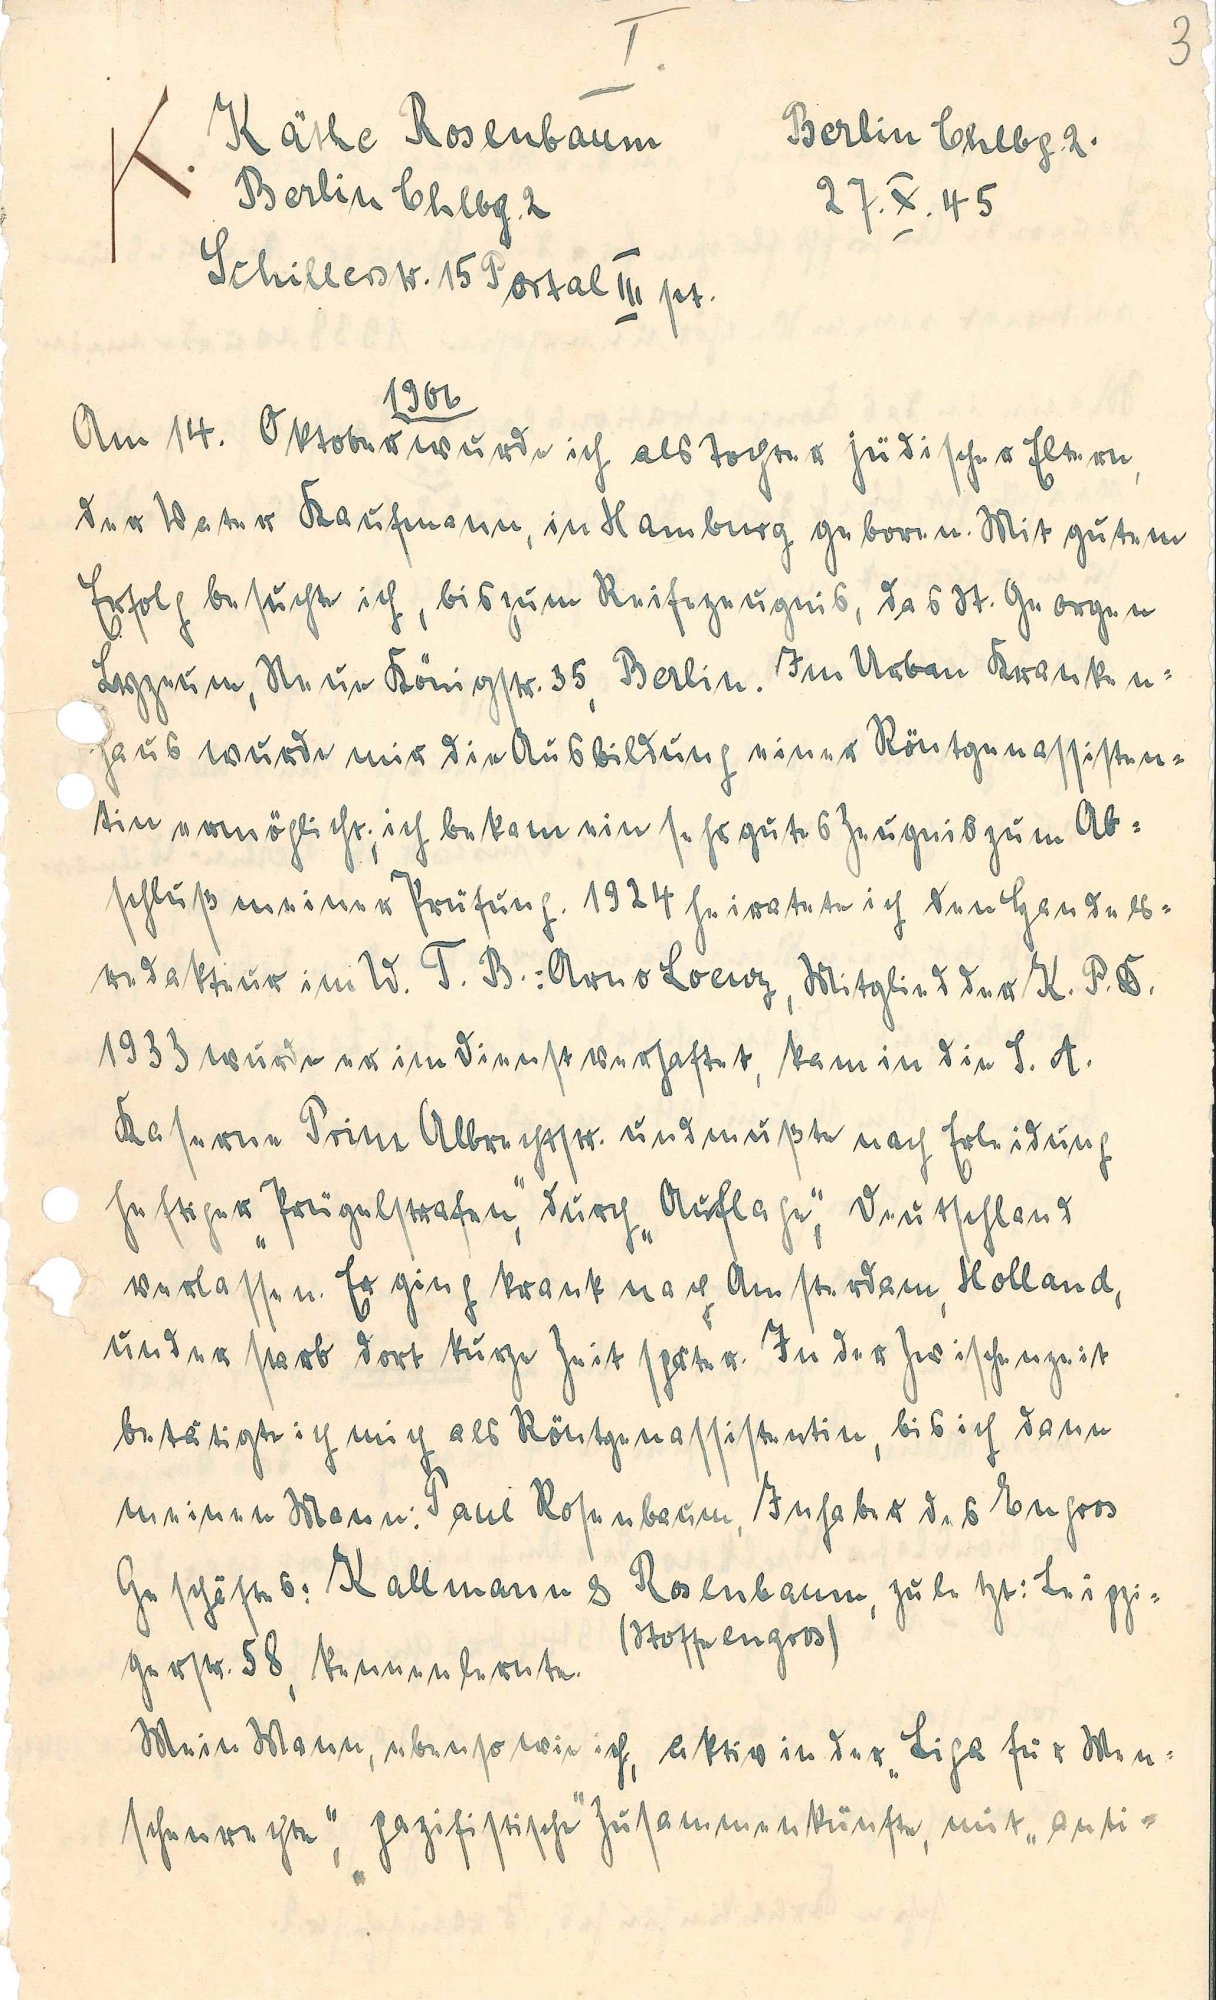 I.
3
K.
Käthe Rosenbaum
Berlin Chlbg. 2
Schillerstr. 15 Portal III pt.
Berlin Chlbg. 2.
27. X. 45
1906
Am 14. Oktober wurde ich als Tochter jüdischer Eltern,
der Vater Kaufmann, in Hamburg geboren. Mit gutem
Erfolg besuchte ich, bis zum Reifezeugnis, das St. Georgen
Lyzeum, Neue Königstr. 35, Berlin. Im Urban Kranken=
haus wurde mir die Ausbildung einer Röntgenassisten=
tin ermöglicht; ich bekam ein sehr gutes Zeugnis zum Ab=
schluß meiner Prüfung. 1924 heiratete ich den Handels=
redakteur im W. T. B.: Arno Loewy, Mitglied der K. P. D.
1933 wurde er im Dienst verhaftet, kam in die S. A.
Kaserne Prinz Albrechtstr. und mußte nach Erleidung
heftiger „Prügelstrafen", durch „Auflage", Deutschland
verlassen. Er ging krank nach Amsterdam, Holland,
und er starb dort kurze Zeit später. In der Zwischenzeit
betätigte ich mich als Röntgenassistentin, bis ich dann
meinen Mann: Paul Rosenbaum, Inhaber des Engros
Geschäftes: Kallmann & Rosenbaum, zuletzt: Leipzi=
(Stoffe engros)
gerstr. 58, kennenlernte.
Mein Mann, ebenso wie ich, aktiv in der „Liga für Men=
schenrechte", „pazifistische" Zusammenkünfte, mit „anti=